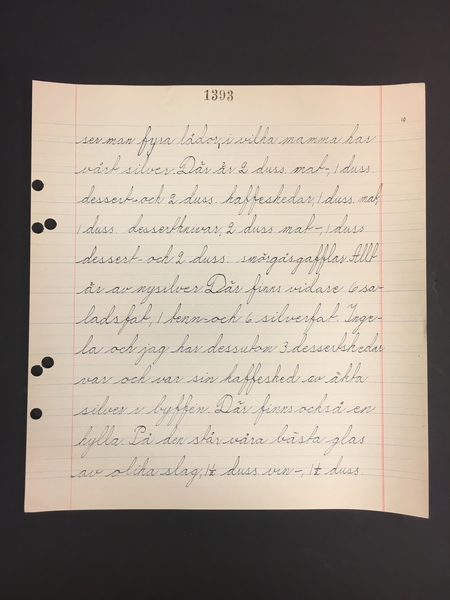 1393
10
ser man fyra lådor, i vilka mamma har
vårt silver. Där är 2 duss. mat-, 1 duss.
dessert- och 2 duss. kaffeskedar, 1 duss. mat,
1 duss. dessertknivar, 2 duss. mat-, 1 duss.
dessert- och 2 duss. smörgåsgafflar. Allt
är av nysilver. Där finns vidare 6 sa-
ladsfat, 1 tenn- och 6 silverfat. Inge-
la och jag har dessutom 3 dessertskedar
var och var sin kaffesked av äkta
silver i byffén. Där finns också en
hylla. På den står våra bästa glas
av olika slag, 1½ duss. vin-, 1½ duss.